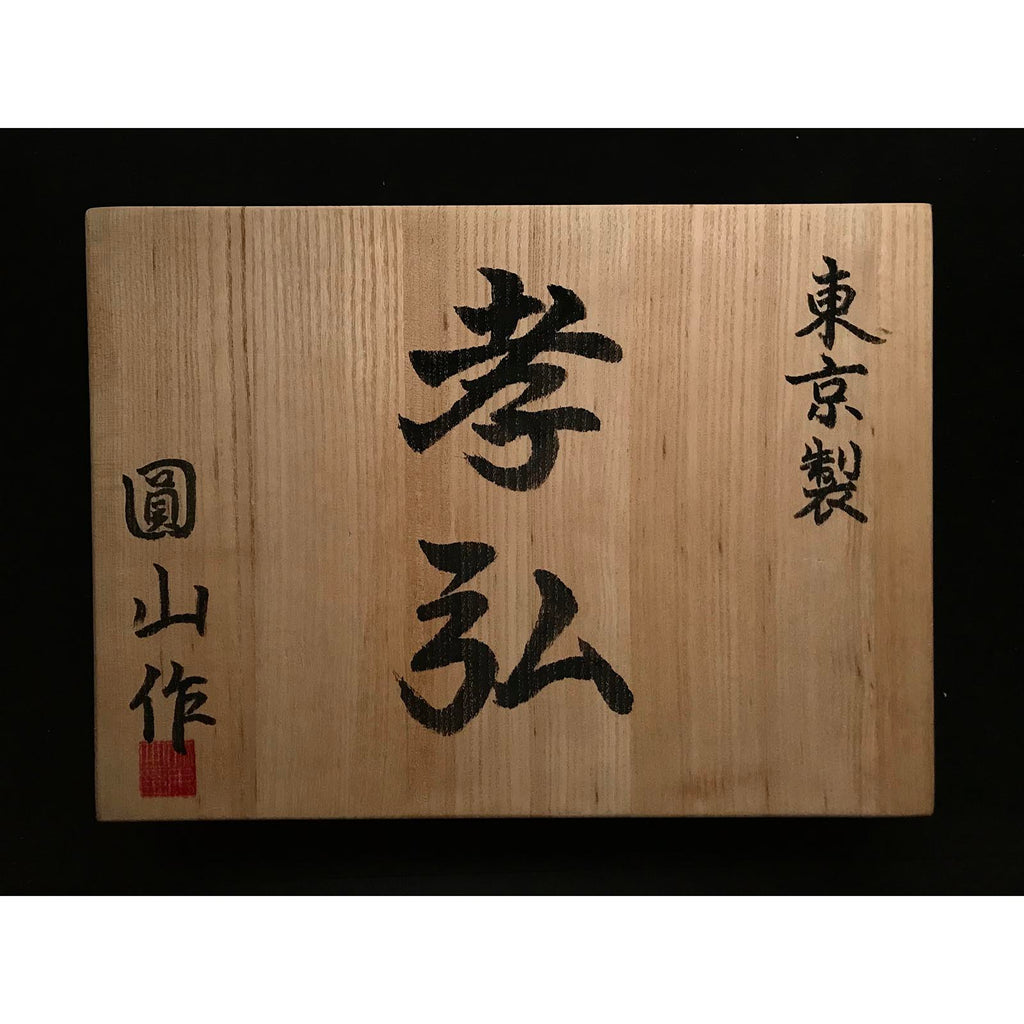 東京製
孝弘
圓山作